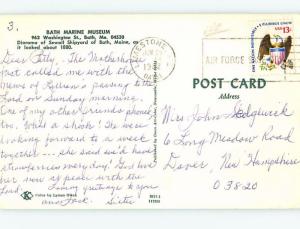 3.
BATH MARINE MUSEUM
963 Washington St., Bath, Me. 04530
Diorama of Sewall Shipyard of Bath, Maine, as
it looked about 1880.
Dear Patty, The Motherhouse
just called me with the
news of passing to the
Lord on Sunday morning.
One of my other friends phoned
too. What a shock! We were
looking forward to a week
together -- she said we'd have
strawberries every day! God has
her now at peace with the
Lord. Loving greetings to you
and Jack. Sister
Color by
LIMESTONE
JUN
PM
AIR FORCE
13c
POST CARD
Address
Mrs John Sedgwick
6 Long Meadow Road
Dover, New Hampshire
03820